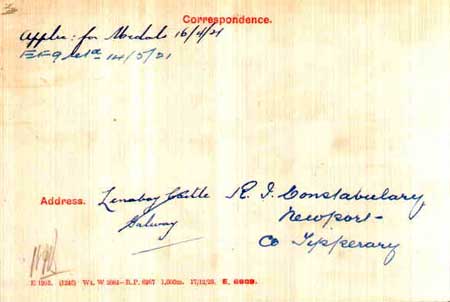 Correspondence.
Applic: for Medals 16/4/21
14/5/21
Address. Lenaboy Castle
Galway
R. I. Constabulary
Newport-
Co Tipperary
E 1292. (1246) Wt. W 5084—R.P. 6267 1,000m. 17/12/20. E. 6909.